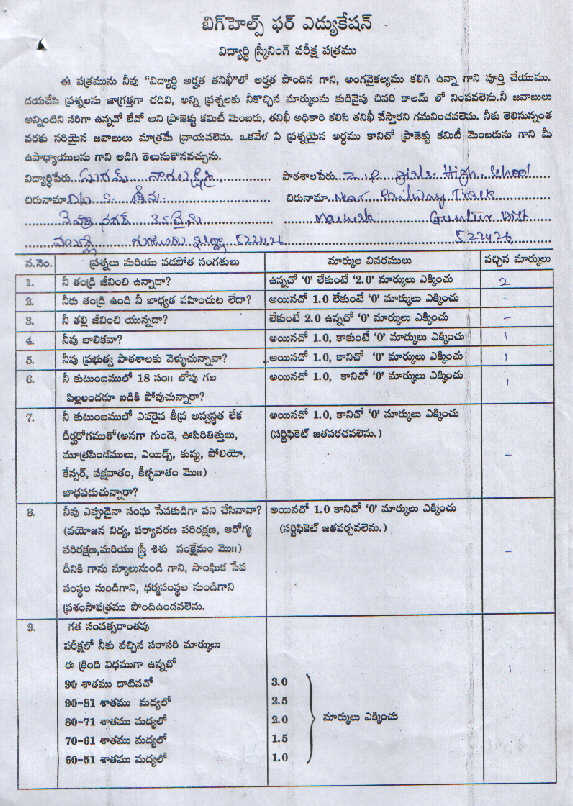 బిగ్‌హెల్ప్ ఫర్ ఎడ్యుకేషన్
విద్యార్థి స్క్రీనింగ్ పరీక్ష పత్రము
ఈ పత్రమును నీవు "విద్యార్థి అర్హత తనిఖీ"లో అర్హత పొందిన గాని, అంగవైకల్యము కలిగి ఉన్నా గాని పూర్తి చేయుము.
దయచేసి ప్రశ్నలను జాగ్రత్తగా చదివి, అన్ని ప్రశ్నలకు నీకొచ్చిన మార్కులను కుడివైపు చివరి కాలమ్ లో నింపవలెను. నీ జవాబులు
అన్నింటిని సరిగా ఉన్నవో లేవో అని ప్రాజెక్టు కమిటీ మెంబరు, తనిఖీ అధికారి కలిసి తనిఖీ చేస్తారని గమనించవలెను. నీకు తెలిసినంత
వరకు సరియైన జవాబులు మాత్రమే వ్రాయవలెను. ఒకవేళ ఏ ప్రశ్నయైన అర్థము కానిచో ప్రాజెక్టు కమిటీ మెంబరును గాని మీ
ఉపాధ్యాయులను గాని అడిగి తెలుసుకొనవచ్చును.
విద్యార్థిపేరు పాఠశాలపేరు Z. P. Girls High School
చిరునామా చిరునామా Near Railway Track
Guntur Dist
గుంటూరు జిల్లా 522426 522426
న.నెం. ప్రశ్నలు మరియు పడపోత సంగతులు మార్కుల వివరములు వచ్చిన మార్కులు
1. నీ తండ్రి జీవించి ఉన్నాడా? ఉన్నచో '0' లేకుంటే '2.0' మార్కులు ఎక్కించు 2
2. నీకు తండ్రి ఉండి నీ బాధ్యత వహించుట లేదా? అయినచో 1.0 లేకుంటే '0' మార్కులు ఎక్కించు -
3. నీ తల్లి జీవించి యున్నదా? లేకుంటే 2.0 ఉన్నచో '0' మార్కులు ఎక్కించు -
4. నీవు బాలికవా? అయినచో 1.0, కాకుంటే '0' మార్కులు ఎక్కించు 1
5. నీవు ప్రభుత్వ పాఠశాలకు వెళ్ళుచున్నావా? అయినచో 1.0, కానిచో '0' మార్కులు ఎక్కించు 1
6. నీ కుటుంబములో 18 సం॥ లోపు గల అయినచో 1.0, కానిచో '0' మార్కులు ఎక్కించు 1
పిల్లలందరూ బడికి పోవుచున్నారా?
7. నీ కుటుంబములో ఎవరైన తీవ్ర అస్వస్థత లేక అయినచో 1.0, కానిచో '0' మార్కులు ఎక్కించు -
దీర్ఘరోగముతో(అనగా గుండె, ఊపిరితిత్తులు, (సర్టిఫికెట్ జతపరచవలెను.)
మూత్రపిండములు, ఎయిడ్స్, కుష్ఠు, పోలియో,
కేన్సర్, పక్షవాతం, కీళ్ళవాతం మొ॥)
బాధపడుచున్నారా?
8. నీవు ఎప్పుడైనా సంఘ సేవకుడిగా పని చేసినావా? అయినచో 1.0 కానిచో '0' మార్కులు ఎక్కించు -
(వయోజన విద్య, పర్యావరణ పరిరక్షణ, ఆరోగ్య (సర్టిఫికెట్ జతపర్చవలెను.)
పరిరక్షణ,మరియు స్త్రీ శిశు సంక్షేమం మొ॥)
దీనికి గాను స్కూలునుండి గాని, సాంఘిక సేవ
సంస్థల నుండిగాని, ధర్మసంస్థల నుండిగాని
ప్రశంసాపత్రము పొందిఉండవలెను.
9. గత సంవత్సరాంతపు
పరీక్షలో నీకు వచ్చిన సరాసరి మార్కులు
ఈ క్రింది విధముగా ఉన్నచో
90 శాతము దాటినచో 3.0
90-81 శాతము మధ్యలో 2.5
80-71 శాతము మధ్యలో 2.0 మార్కులు ఎక్కించు
70-61 శాతము మధ్యలో 1.5
60-51 శాతము మధ్యలో 1.0